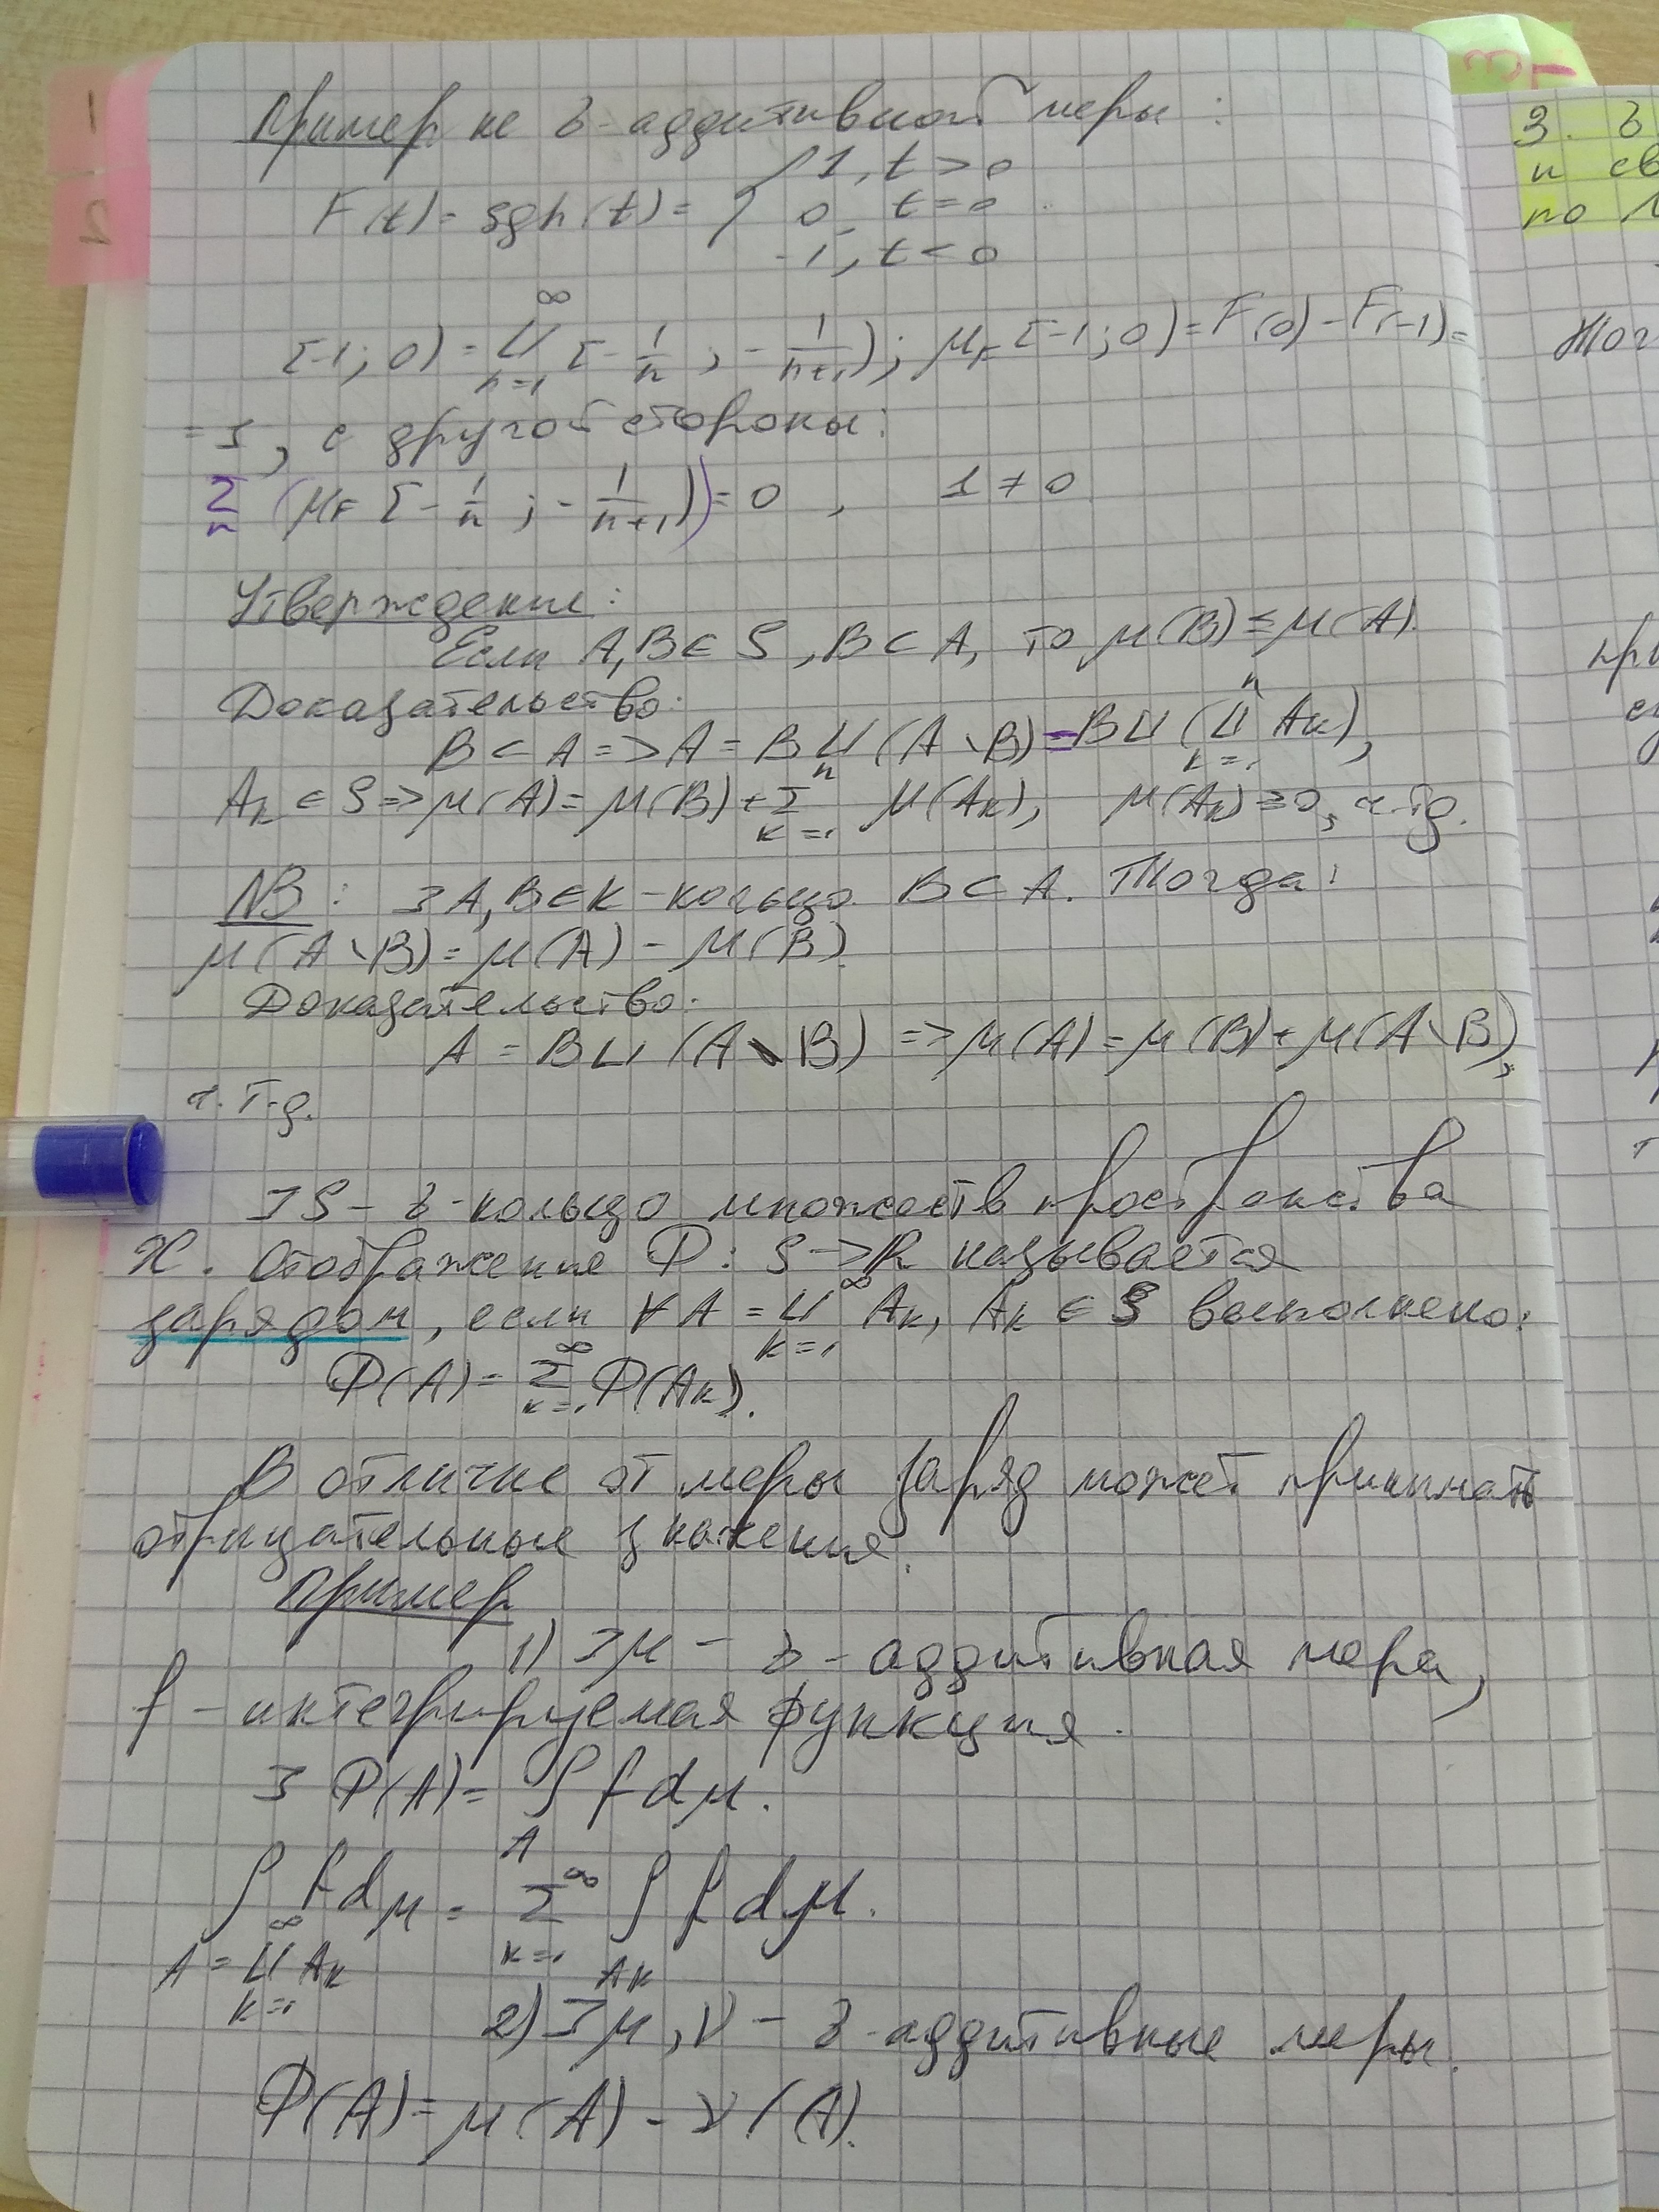 Пример не σ-аддитивной меры:
F(t) = sgn(t) = { 1, t > 0
0, t = 0
-1, t < 0
[-1; 0) = ⊔_{n=1}^{∞} [-1/n ; -1/(n+1)); μ_F [-1; 0) = F(0) - F(-1) =
= 1, с другой стороны:
Σ_n (μ_F [-1/n ; -1/(n+1))) = 0 , 1 ≠ 0
Утверждение:
Если A, B ∈ S, B ⊂ A, то μ(B) ≤ μ(A).
Доказательство:
B ⊂ A => A = B ⊔ (A \ B) = B ⊔ (⊔_{k=1}^{n} A_k),
A_k ∈ S => μ(A) = μ(B) + Σ_{k=1}^{n} μ(A_k), μ(A_k) ≥ 0, ч.т.д.
NB: ] A, B ∈ K - кольцо. B ⊂ A. Тогда:
μ(A \ B) = μ(A) - μ(B)
Доказательство:
A = B ⊔ (A \ B) => μ(A) = μ(B) + μ(A \ B),
ч.т.д.
] S - σ-кольцо множеств пространства
X. Отображение Φ: S -> R называется
зарядом, если ∀ A = ⊔_{k=1}^{∞} A_k, A_k ∈ S выполнено:
Φ(A) = Σ_{k=1}^{∞} Φ(A_k).
В отличие от меры заряд может принимать
отрицательные значения.
Пример
1) ] μ - σ-аддитивная мера,
f - интегрируемая функция.
] Φ(A) = ∫_A f dμ.
∫_{A = ⊔_{k=1}^{∞} A_k} f dμ = Σ_{k=1}^{∞} ∫_{A_k} f dμ.
2) ] μ, ν - σ-аддитивные меры.
Φ(A) = μ(A) - ν(A).
3. σ
и св
по Л
Тог
при